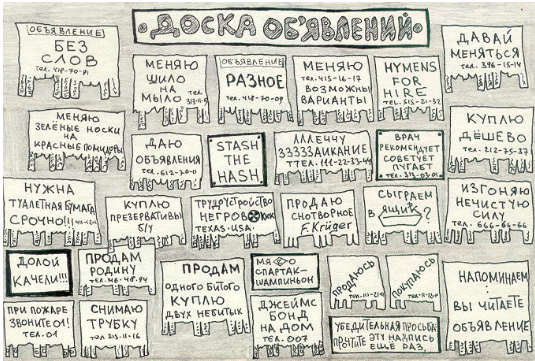 ДОСКА ОБ'ЯВЛЕНИЙ
ОБЪЯВЛЕНИЕ
БЕЗ
СЛОВ
МЕНЯЮ
ШИЛО
НА
МЫЛО тел.
ОБЪЯВЛЕНИЕ
РАЗНОЕ
МЕНЯЮ
ТЕЛ. 415-16-17
ВОЗМОЖНЫ
ВАРИАНТЫ
HYMENS
FOR
HIRE
TEL. 515-21-32
ДАВАЙ
МЕНЯТЬСЯ
тел. 396-15-14
МЕНЯЮ
ЗЕЛЁНЫЕ НОСКИ
НА
КРАСНЫЕ ПОМИДОРЫ
ДАЮ
ОБЪЯВЛЕНИЯ
STASH
THE
HASH
ЛЛЛЕЧЧУ
ЗЗЗЗЗАИКАНИЕ
ТТТЕЛ. 111-22-33-44
ВРАЧ
РЕКОМЕНДУЕТ
СОВЕТУЕТ
ПУГАЕТ
ТЕЛ. 313-03-01
КУПЛЮ
ДЁШЕВО
ТЕЛ. 212-75-37
НУЖНА
ТУАЛЕТНАЯ БУМАГА
СРОЧНО!!!
КУПЛЮ
ПРЕЗЕРВАТИВЫ
Б/У
ТРУДУСТРОЙСТВО
НЕГРОВ KKK
TEXAS-USA.
ПРОДАЮ
СНОТВОРНОЕ
F. Krüger
СЫГРАЕМ
В ЯЩИК?
ИЗГОНЯЮ
НЕЧИСТУЮ
СИЛУ
ТЕЛ. 666-66-66
ДОЛОЙ
КАЧЕЛИ!!!
ПРОДАМ
РОДИНУ
ПРОДАМ
ОДНОГО БИТОГО
КУПЛЮ
ДВУХ НЕБИТЫХ
СПАРТАК-
ШАМПИНЬОН
ПРОДАЮСЬ
ПОКУПАЮСЬ
НАПОМИНАЕМ:
ВЫ ЧИТАЕТЕ
ОБЪЯВЛЕНИЕ
ПРИ ПОЖАРЕ
ЗВОНИТЕ 01!
ТЕЛ. 01
СНИМАЮ
ТРУБКУ
ТЕЛ 215-11-16
ДЖЕЙМС
БОНД
НА ДОМ
ТЕЛ. 007
УБЕДИТЕЛЬНАЯ ПРОСЬБА
ЭТУ НАДПИСЬ
ЕЩЁ РАЗ.